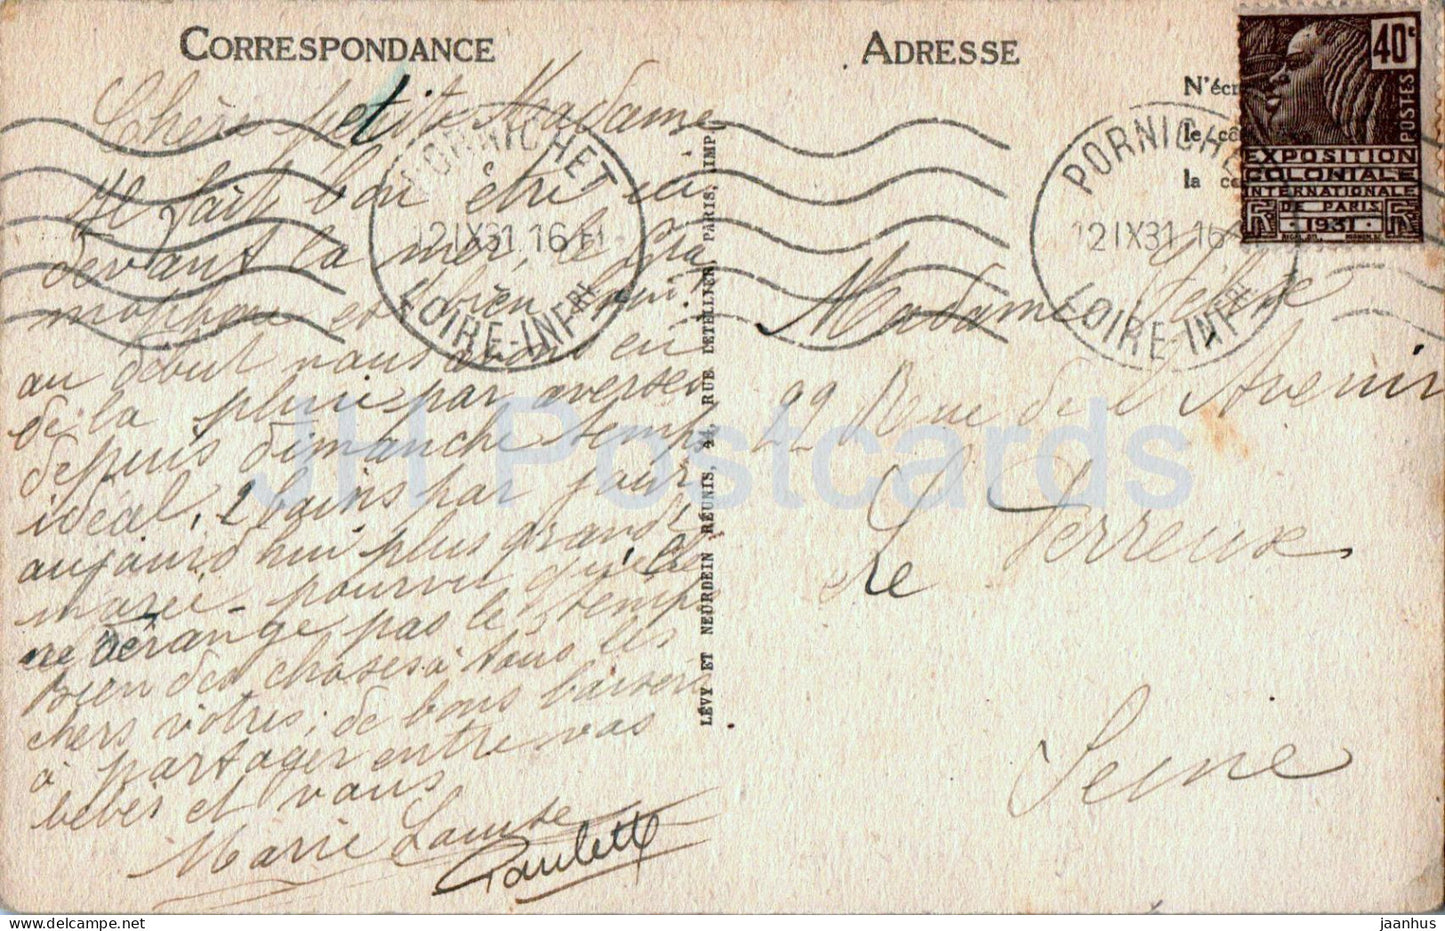 CORRESPONDANCE
Chère petite Madame
Il fait bon être ici
devant la mer, le
et bien
au début nous avons eu
de la pluie par averses
depuis dimanche temps
idéal, 2 bains par jour
aujourd'hui plus grande
marée - pourvu qu'elle
ne dérange pas le temps
Bien des choses à tous les
chers vôtres, de bons baisers
à partager entre vos
bébés et vous
Marie Louise
Paulette
LÉVY ET NEURDEIN RÉUNIS, 44, RUE LETELLIER, PARIS, IMP
ADRESSE
N'écr
le cô
la ca
40c
POSTES
EXPOSITION
COLONIALE
INTERNATIONALE
DE PARIS
1931
PORNICHET
12 IX 31 16
LOIRE-INFRE
PORNICHE
12 IX 31 16
LOIRE-INFRE
Madame
22 Rue de l'Avenir
Le Perreux
Seine
JH Postcards
delcampe.net
jaanhus